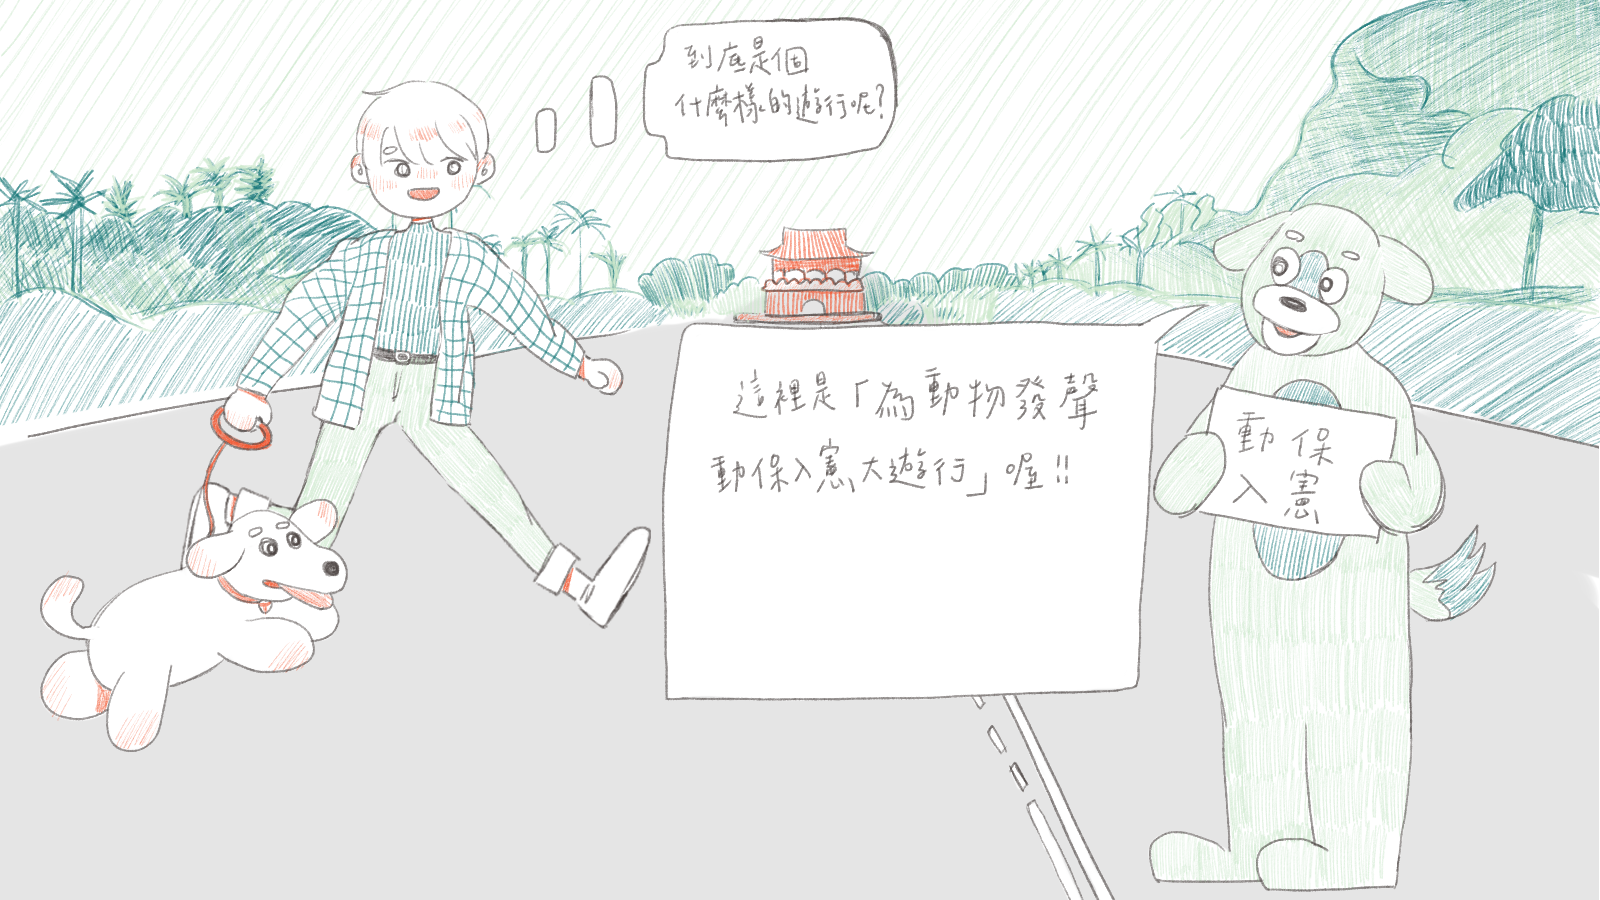 到底是個
什麼樣的遊行呢?
這裡是「為動物發聲
動保入憲大遊行」喔!!
動保
入憲